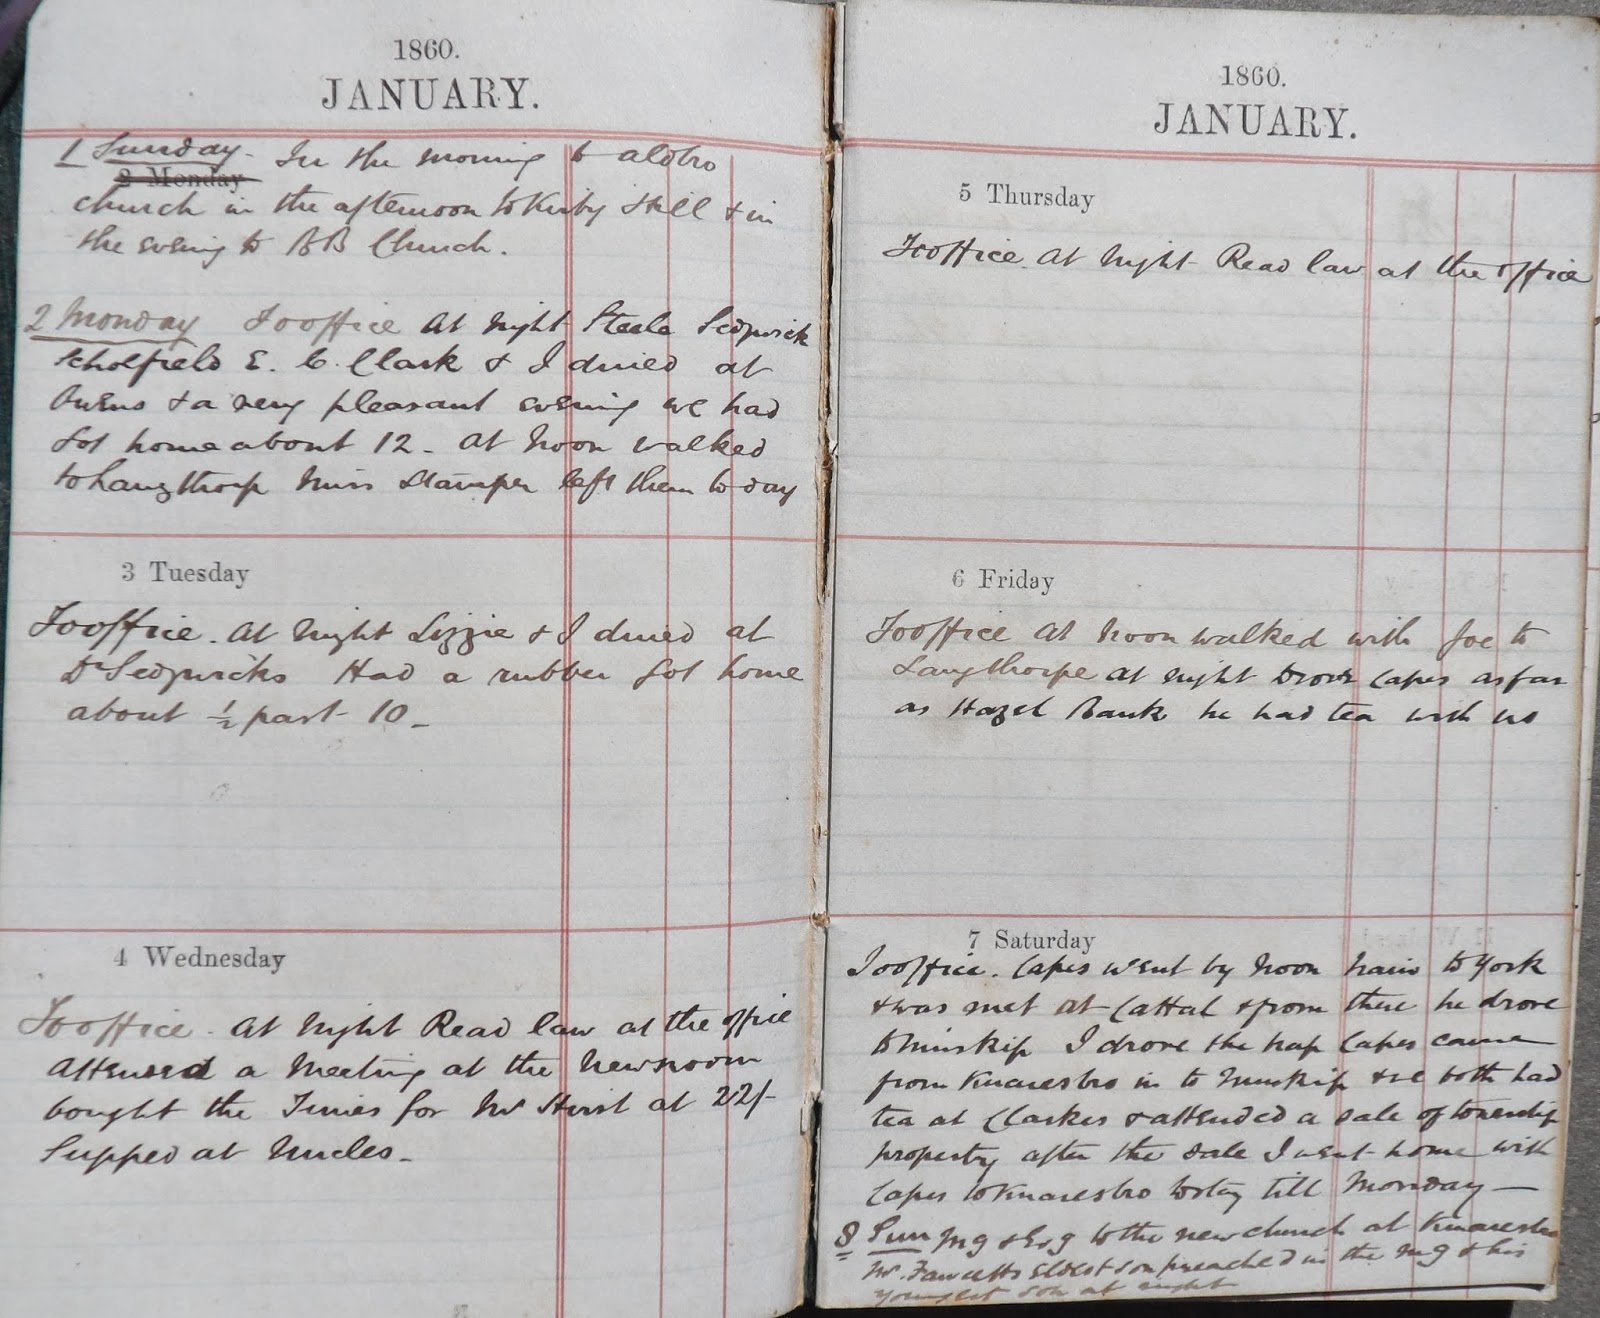 1860.
JANUARY.
1 Sunday - In the morning to Aldbro
2 Monday
church in the afternoon to Kirby Hill & in
the evening to BB Church.
2 Monday To office At Night Steele Sedgwick
Scholfield E. C. Clark & I dined at
Owens & a very pleasant evening we had
Got home about 12 - At Noon walked
to Langthorp Miss Stamper left them to day
3 Tuesday
To office. At Night Lizzie & I dined at
Dr Sedgwicks Had a rubber Got home
about ½ past 10 -
4 Wednesday
To office. At Night Read law at the office
Attended a Meeting at the Newsroom
bought the Times for Mr Hirst at 22/-
Supped at Uncles -
1860.
JANUARY.
5 Thursday
To office. At Night Read law at the office
6 Friday
To office At Noon walked with Joe to
Langthorpe At night Drove Capes as far
as Hazel Bank he had tea with us
7 Saturday
To office. Capes went by Noon train to York
& was met at Cattal & from there he drove
to Minskip I drove the trap Capes came
from Knaresbro in to Minskip & we both had
tea at Clarkes & attended a sale of township
property after the sale I went home with
Capes to Knaresbro to stay till Monday -
8 Sun Mg & Evg to the new church at Knaresbro
Mr. Fawcetts Eldest son preached in the Mg & his
youngest son at night